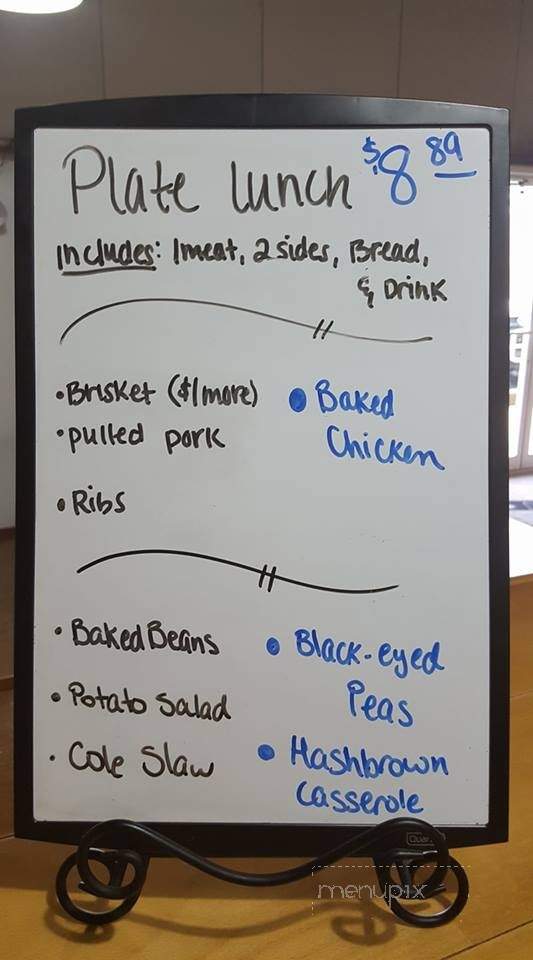 Plate Lunch $8 89
Includes: 1 meat, 2 sides, Bread,
& Drink
• Brisket ($1 more)
• pulled pork
• Ribs
• Baked
Chicken
• Baked Beans
• Potato Salad
• Cole Slaw
• Black-eyed
Peas
• Hashbrown
Casserole
menupix